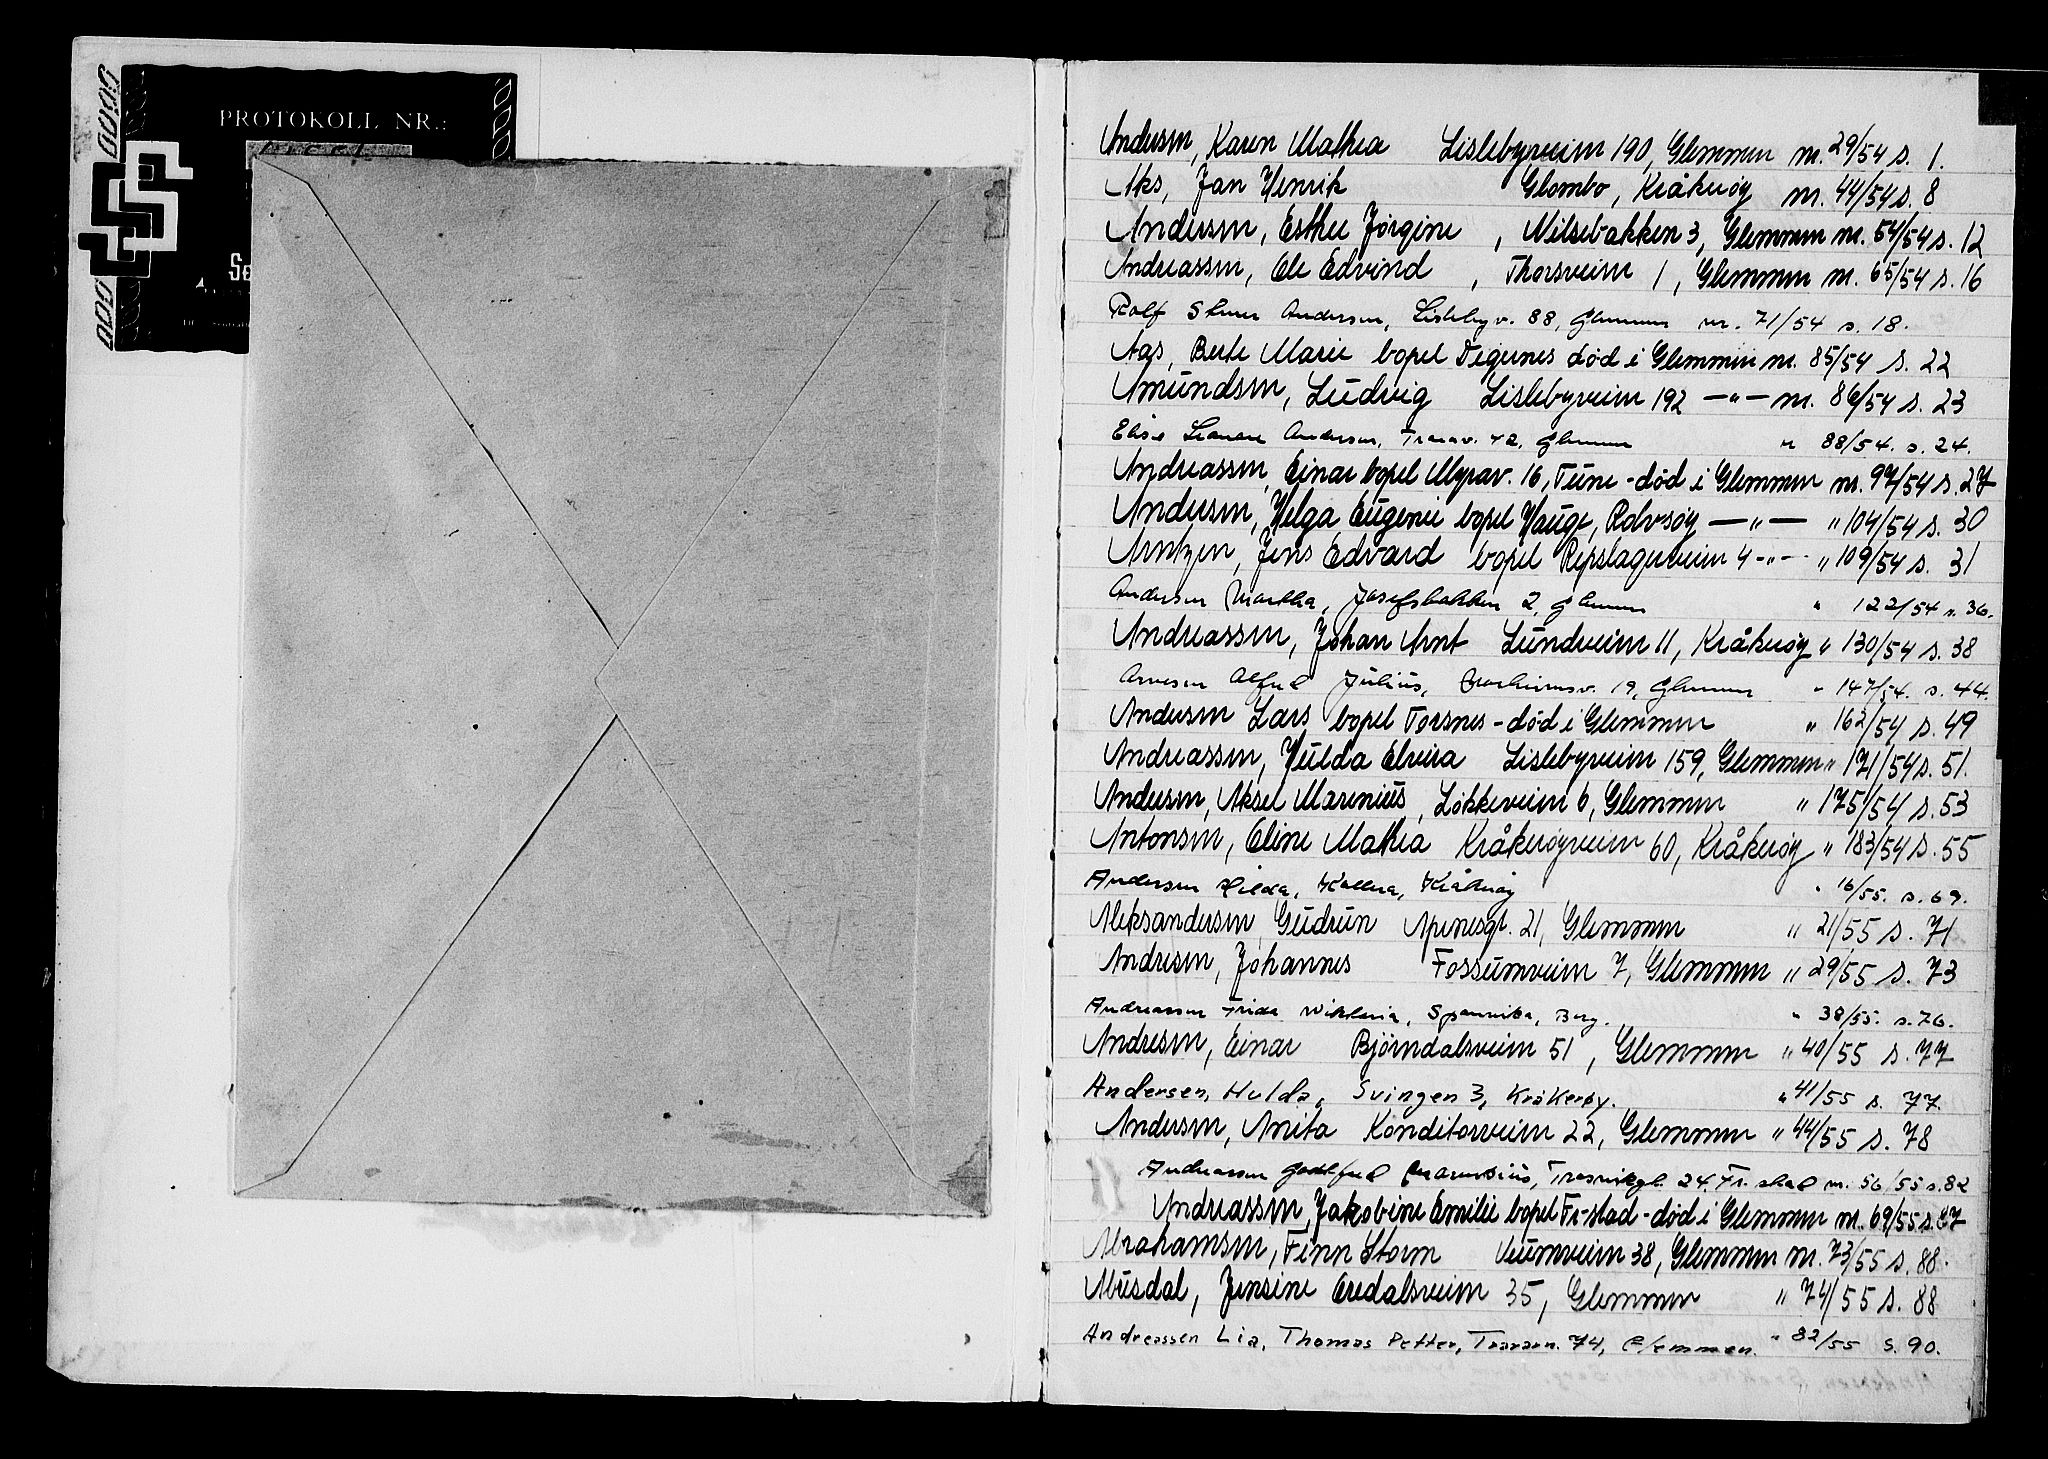 PROTOKOLL NR.:
Andersen, Karen Mathea Lislebyveien 190, Glemmen nr. 29/54 s. 1.
Aks, Jan Henrik Glombo, Kråkerøy nr. 44/54 s. 8
Andersen, Esther Jørgine, Nilsebakken 3, Glemmen nr. 54/54 s. 12
Andreassen, Ole Edvind, Thorsveien 1, Glemmen nr. 65/54 s. 16
Rolf Andersen, Lislebyv. 88, Glemmen nr. 71/54 s. 18.
Aas, Berte Marie bopel Degernes død i Glemmen nr. 85/54 s. 22
Amundsen, Ludvig Lislebyveien 192 —"— nr. 86/54 s. 23
Elise Andersen, Trarav. 72, Glemmen " 88/54. s. 24.
Andreassen, Einar bopel Myrav. 16, Tune - død i Glemmen nr. 97/54 s. 27
Andersen, Helga Eugenie bopel Hauge, Rolvsøy —"— " 104/54 s. 30
Arntzen, Jens Edvard bopel Repslagerveien 4 -"- " 109/54 s. 31
Andersen Martha, Josefsbakken 2, Glemmen " 122/54 s. 36.
Andreassen, Johan Arnt Lundveien 11, Kråkerøy " 130/54 s. 38
Arnesen Alfred Julius, 19, Glemmen " 147/54. s. 44.
Andersen Lars bopel Torsnes - død i Glemmen " 162/54 s. 49
Andreassen, Hulda Elvira Lislebyveien 159, Glemmen " 171/54 s. 51.
Andersen, Aksel Marenius, Løkkeveien 6, Glemmen " 175/54 s. 53
Antonsen, Eline Mathea Kråkerøyveien 60, Kråkerøy " 183/54 s. 55
Andersen Hilda, Kallera, Kråkerøy " 16/55. s. 69.
Aleksandersen, Gudrun Apenesgt. 21, Glemmen " 21/55 s. 71
Andresen, Johannes Fossumveien 7, Glemmen " 29/55 s. 73
Andreassen Frida Wiktoria, Spannika, Borg. " 38/55. s. 76.
Andresen, Einar Bjørndalsveien 51, Glemmen " 40/55 s. 77
Andersen, Hulda, Svingen 3, Kråkerøy. " 41/55 s. 77.
Andersen, Anita Konditorveien 22, Glemmen " 44/55 s. 78
Andreassen Godtfred Marensius, Trosvikgt. 24. Fr. stad nr. 56/55 s. 82
Andreassen, Jakobine Emilie bopel Fr-stad - død i Glemmen nr. 69/55 s. 87
Abrahamsen, Finn Storm Veumveien 38, Glemmen nr. 73/55 s. 88.
Aarsdal, Jensine Oredalsveien 35, Glemmen " 74/55 s. 88
Andreassen Lia, Thomas Petter, Trarav. 74, Glemmen. " 82/55 s. 90.